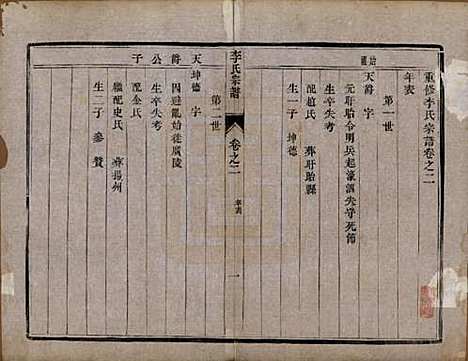 重修李氏宗譜卷之二
年表
第一世
始祖
天爵 字
元盱眙令明兵起濠泗失守死節
生卒失考
配趙氏 葬盱眙縣
生一子 坤德
李氏宗譜
卷之二
年表
一
第二世
天爵公子
坤德 字
因避亂始徙廣陵
生卒失考
配金氏
繼配史氏 葬揚州
生二子 參 贊